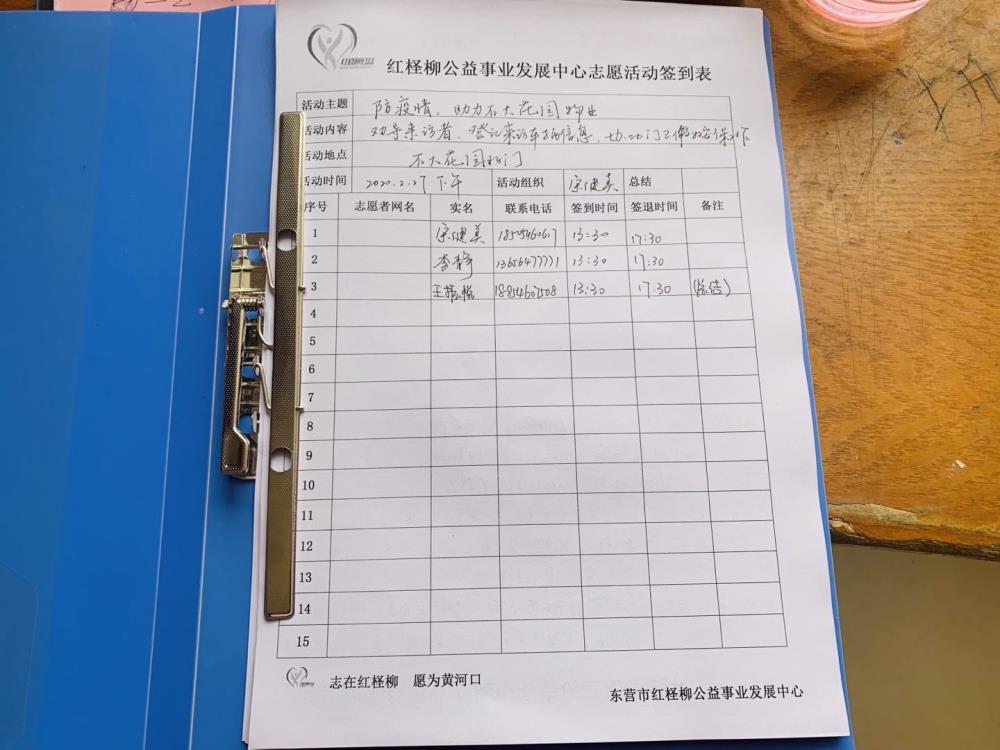 红柽柳公益事业发展中心志愿活动签到表
活动主题 防疫情、助力石大花园物业
活动内容 劝导来访者、登记来访车辆信息、
活动地点 石大花园北门
活动时间 2020.2.27 下午 活动组织 宋健美 总结
序号 志愿者网名 实名 联系电话 签到时间 签退时间 备注
1 宋健美 13:30 17:30
2 李静 13656477771 13:30 17:30
3 18854607508 13:30 17:30 (总结)
4
5
6
7
8
9
10
11
12
13
14
15
志在红柽柳 愿为黄河口
东营市红柽柳公益事业发展中心